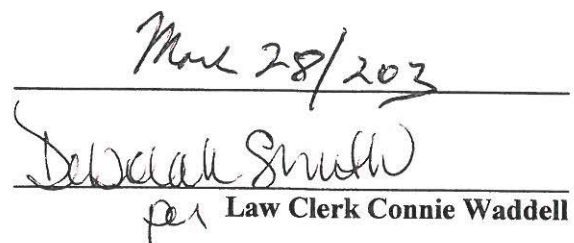 Mar 28/203
Deborah Smith
per Law Clerk Connie Waddell